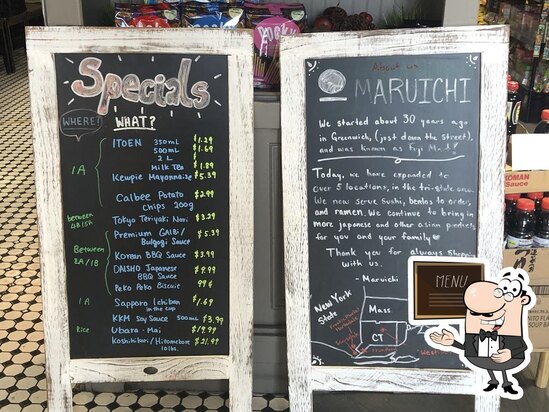 Specials
WHERE?
WHAT?
ITOEN 350ml $1.29
500ml $1.69
2 L
Milk Tea $1.89
1A
Kewpie Mayonnaise $5.39
Calbee Potato $2.99
chips 200g
between
4B/5A
Tokyo Teriyaki Nori $3.29
Premium GAlBi/ $5.39
Bulgogi Sauce
Between
2A/1B
Korean BBQ Sauce $3.99
DAISHO Japanese $8.99
BBQ Sauce
Peko Poko Biscuit 99¢
1A
Sapporo Ichiban $1.69
in the cup
KKM Soy Sauce 500ml $3.99
Rice
Ubara-Mai $19.99
Koshihikari/Hitomebore $21.99
10lbs.
About us
MARUICHI
We started about 30 years ago
in Greenwich, (just down the street),
and was known as Fuji Mart!
Today, we have expanded to
over 5 locations, in the tri-state area.
We now serve Sushi, bentos to order,
and ramen. We continue to bring in
more japanese and other asian products
for you and your family
Thank you for always
with us.
- Maruichi
New York
State
Mass
CT
MENU
KOMAN
Sauce